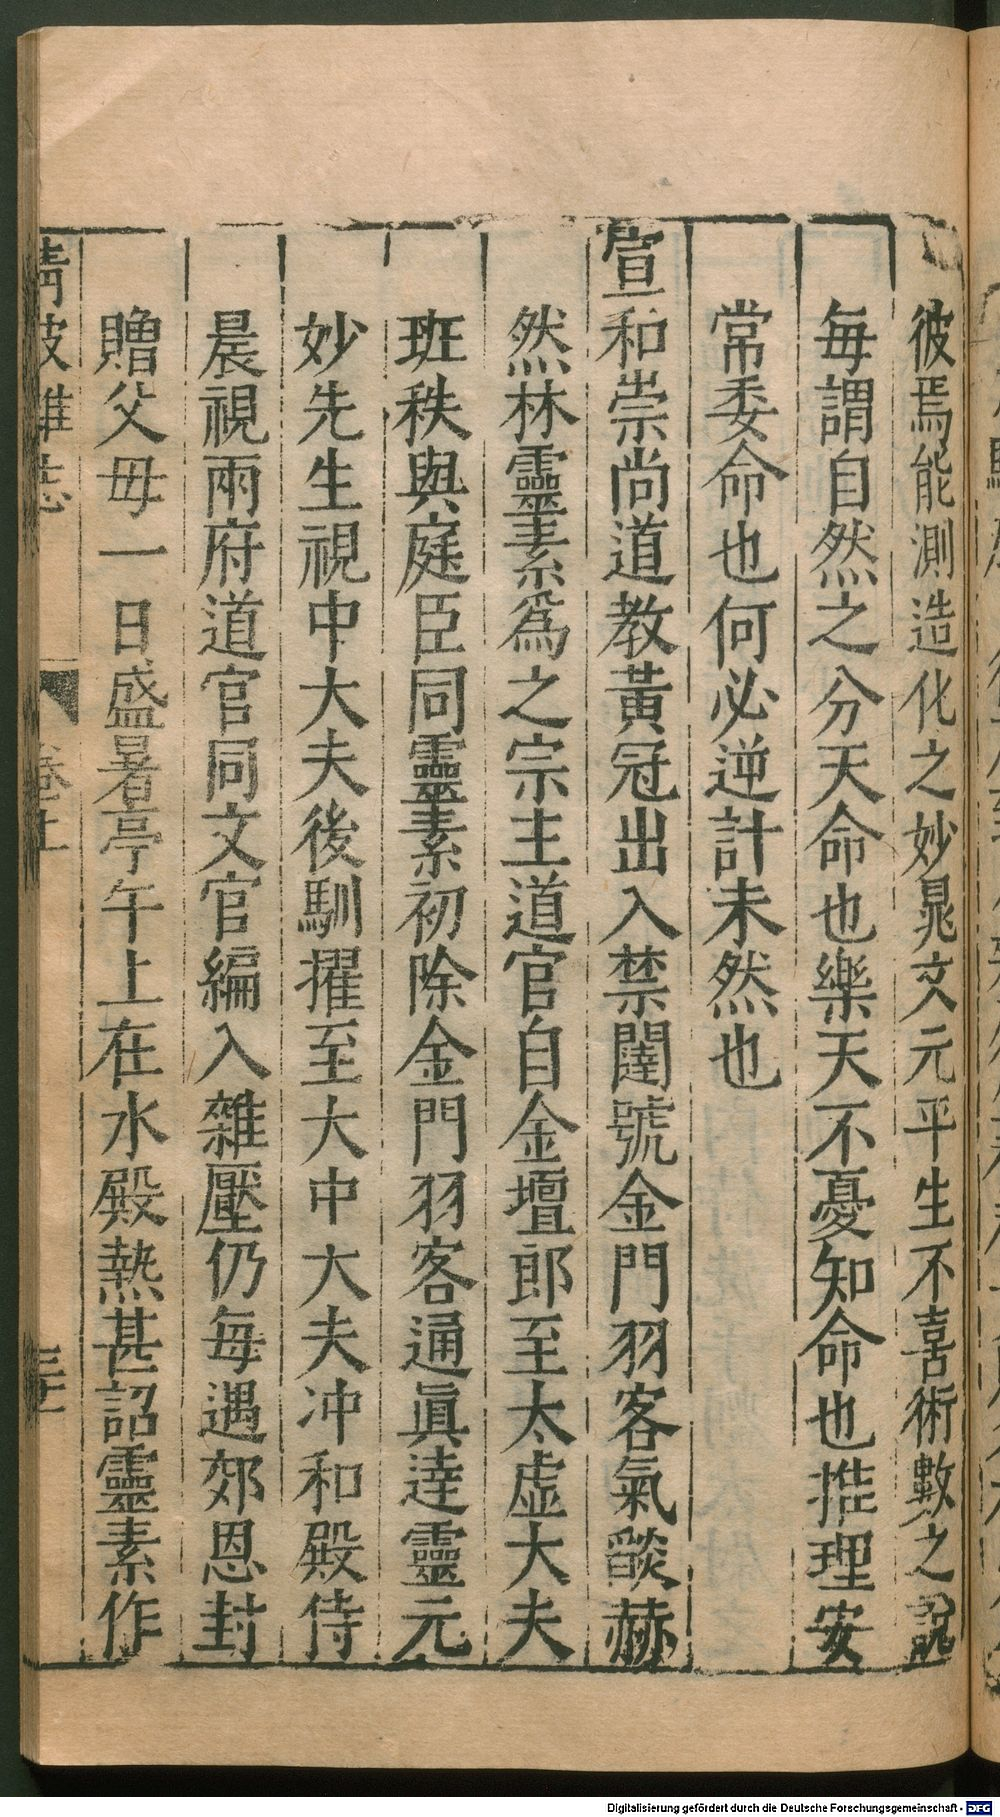 彼焉能測造化之妙晁文元平生不喜術數之說
每謂自然之分天命也樂天不憂知命也推理安
常委命也何必逆計未然也
宣和崇尚道教黃冠出入禁闥號金門羽客氣燄赫
然林靈素為之宗主道官自金壇郎至太虛大夫
班秩與庭臣同靈素初除金門羽客通眞達靈元
妙先生視中大夫後馴擢至大中大夫冲和殿侍
晨視兩府道官同文官編入雜壓仍每遇郊恩封
贈父母一日盛暑亭午上在水殿熱甚詔靈素作
清波雜志
卷上
三十
Digitalisierung gefördert durch die Deutsche Forschungsgemeinschaft - DFG